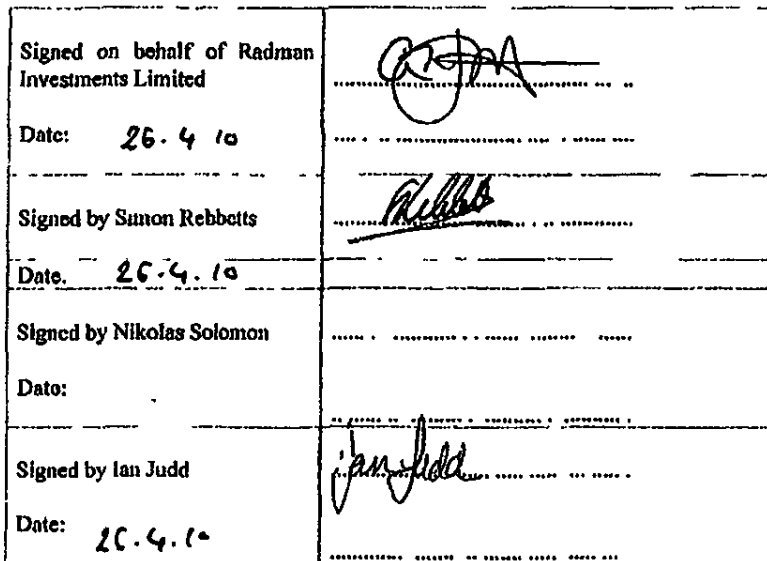 Signed on behalf of Radman
Investments Limited
Date: 26.4 10
Signed by Simon Rebbetts
Date. 26.4.10
Signed by Nikolas Solomon
Date:
Signed by Ian Judd
Ian Judd
Date: 26.4.10